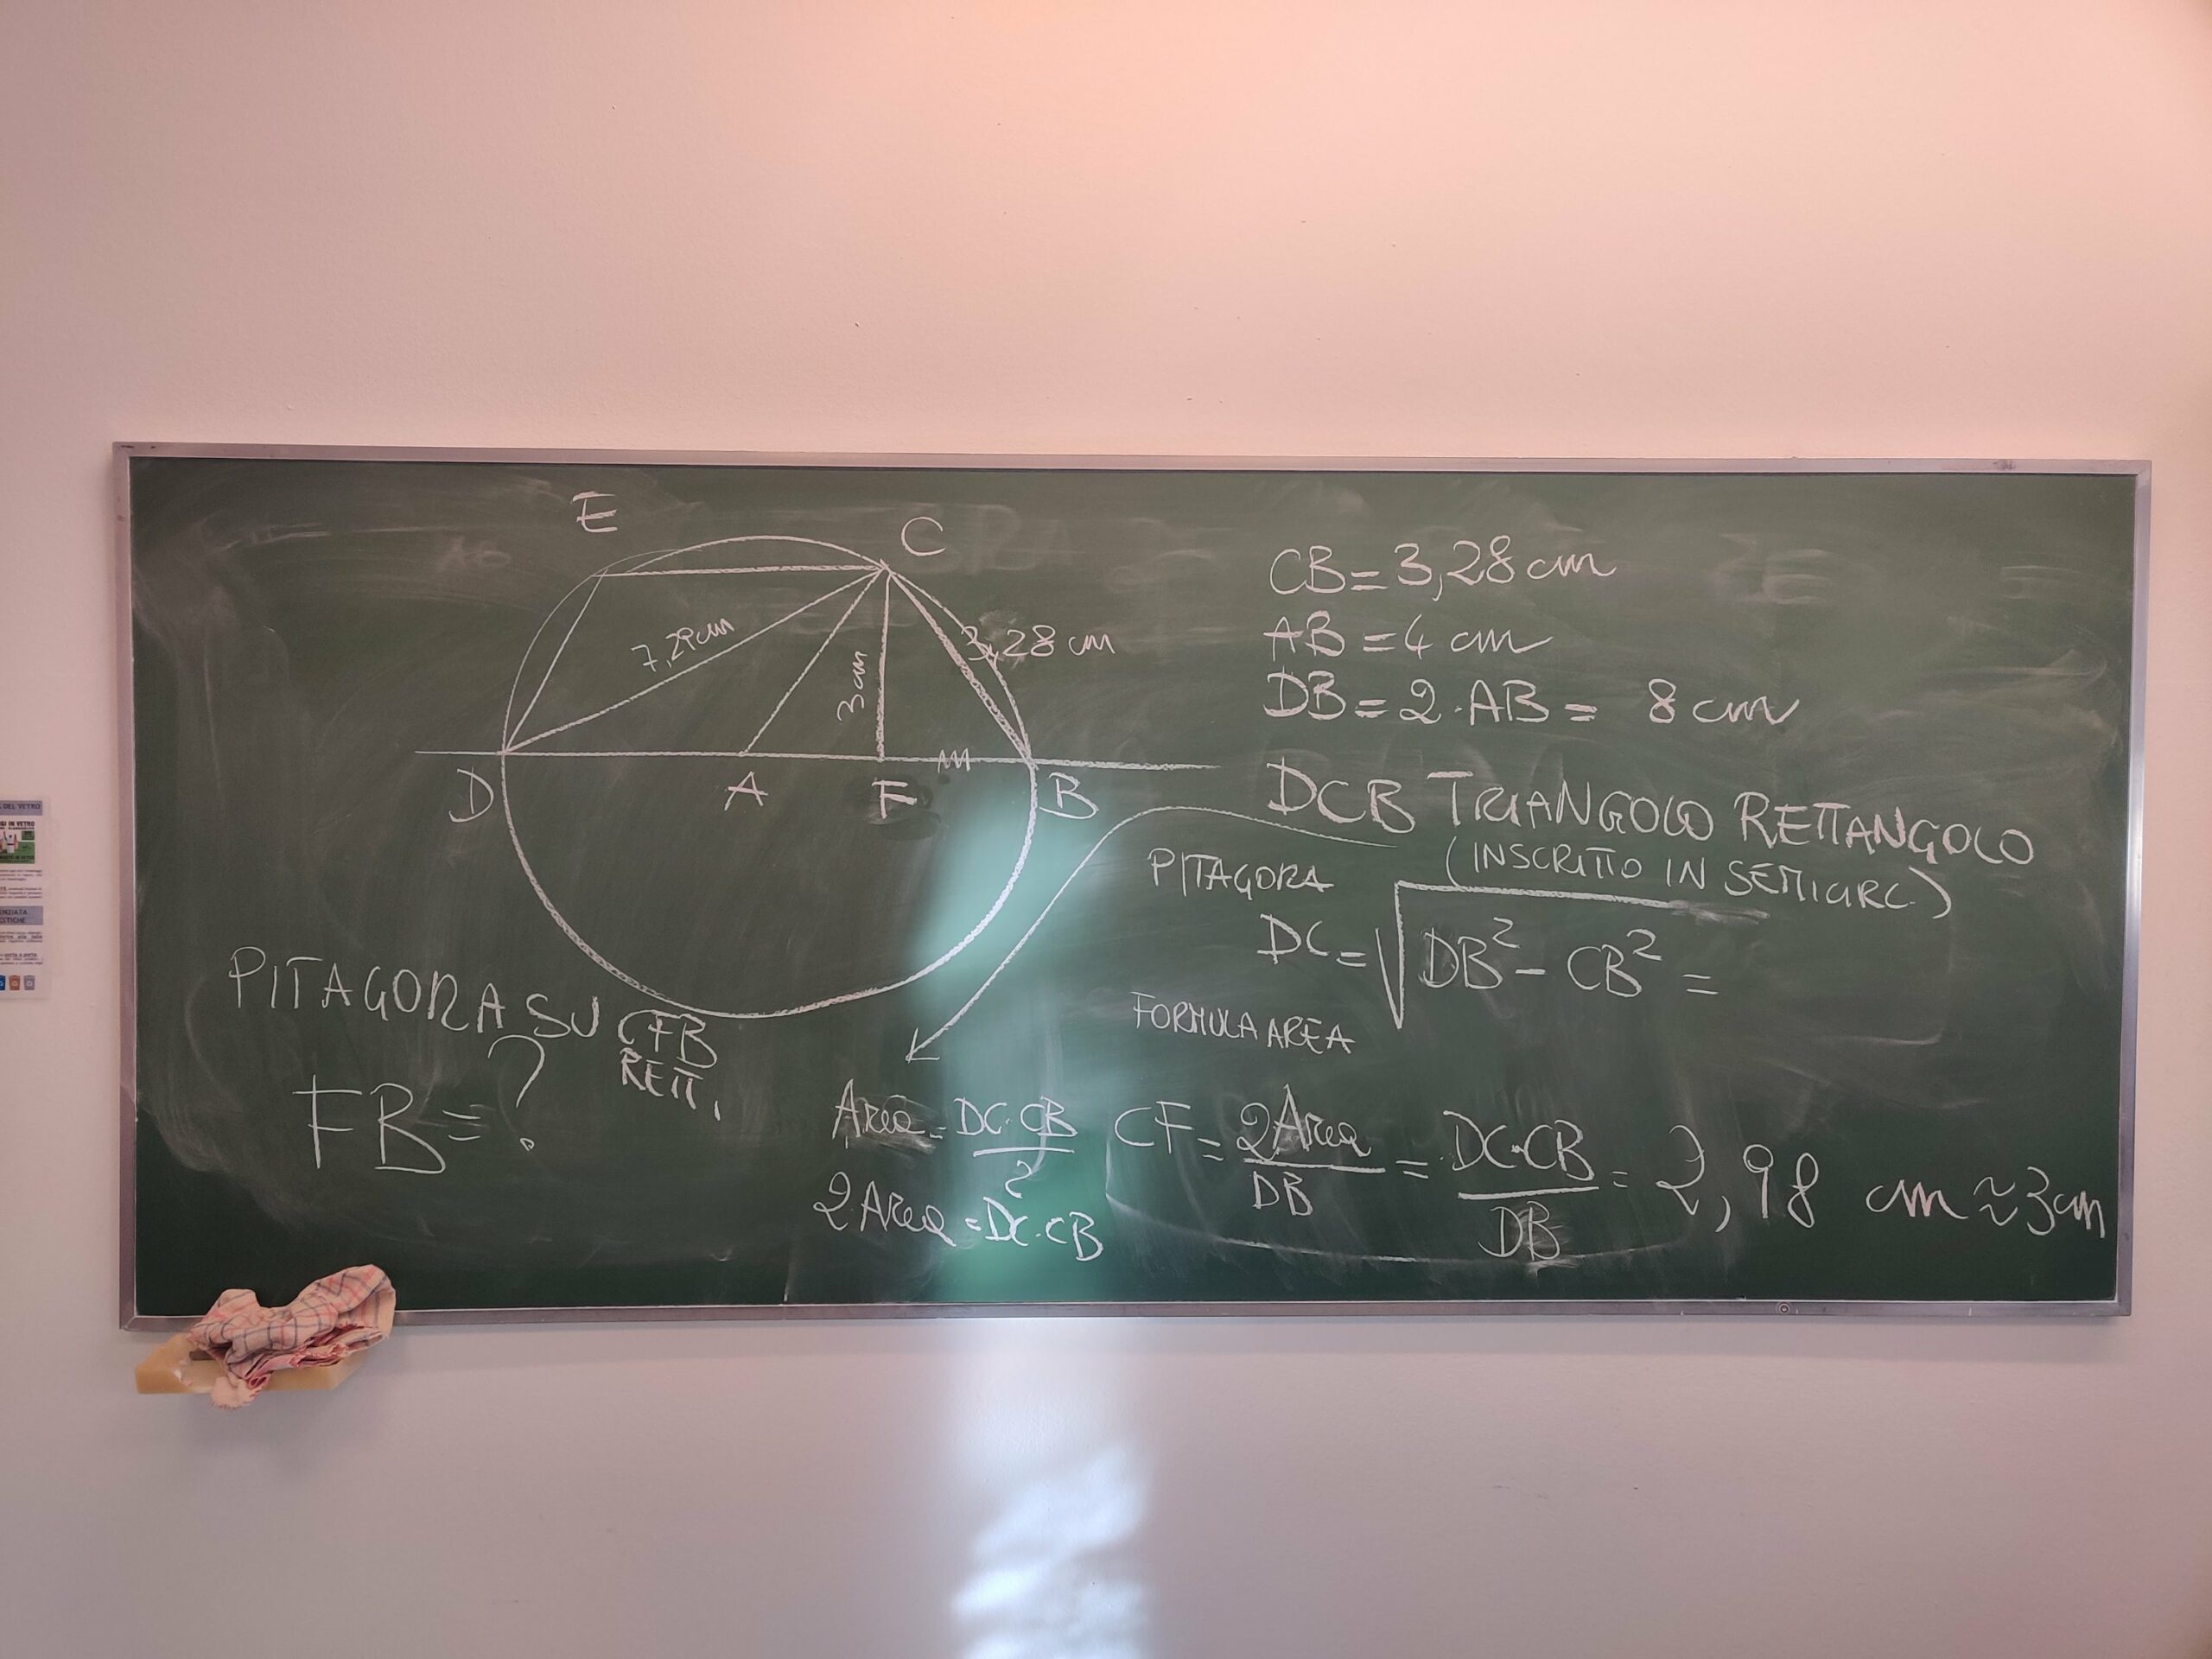 E
C
7,29 cm
3 cm
3,28 cm
D
A
F
B
CB = 3,28 cm
AB = 4 cm
DB = 2·AB = 8 cm
DCB TRIANGOLO RETTANGOLO
(INSCRITTO IN SEMICIRC.)
PITAGORA
DC = √DB² - CB² =
FORMULA AREA
PITAGORA SU CFB
RETT.
FB = ?
Area = DC·CB / 2
2 Area = DC·CB
CF = 2 Area / DB = DC·CB / DB = 2,98 cm ≈ 3 cm
DEL VETRO
IN VETRO